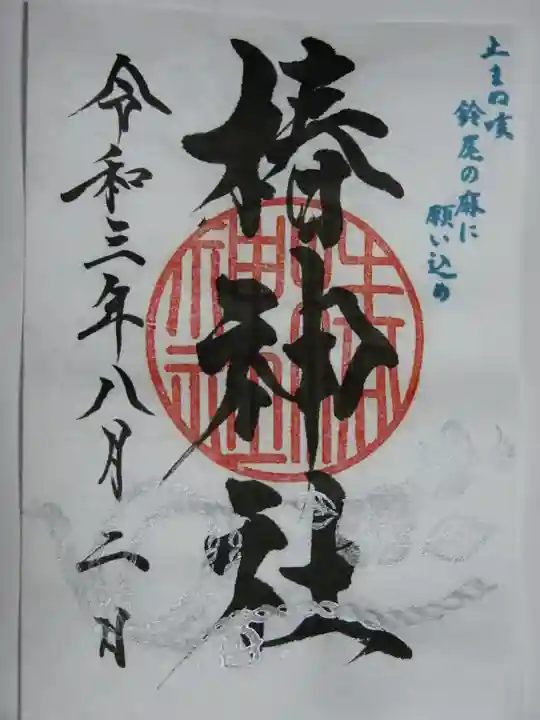 止まぬ咳
鈴尾の麻に
願い込め
椿神社
令和三年八月二日